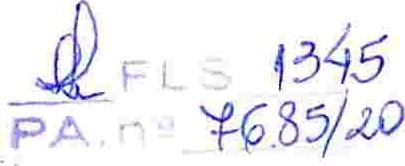 FLS 1345
PA. nº 7685/20